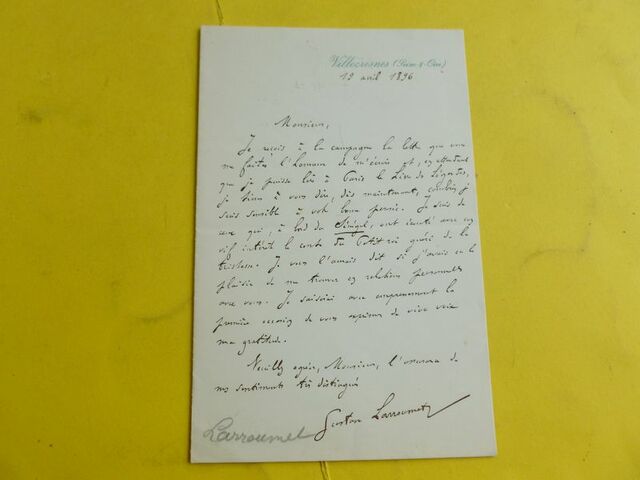 Villecresnes (Seine-&-Oise)
19 avril 1896
Monsieur,
Je reçois à la campagne la lettre que vous
me faites l'honneur de m'écrire et, en attendant
que je puisse lire à Paris le Livre de Légendes,
je tiens à vous dire, dès maintenant, combien je
suis sensible à votre bonne pensée. Je suis de
ceux qui, à bord du Sénégal, ont écouté avec un
vif intérêt le conte du Petit roi guéri de la
tristesse. Je vous l'aurais dit si j'avais eu le
plaisir de me trouver en relations personnelles
avec vous. Je saisirai avec empressement la
première occasion de vous exprimer de vive voix
ma gratitude.
Veuillez agréer, Monsieur, l'assurance de
mes sentiments très distingués
Gustave Larroumet
Larroumet